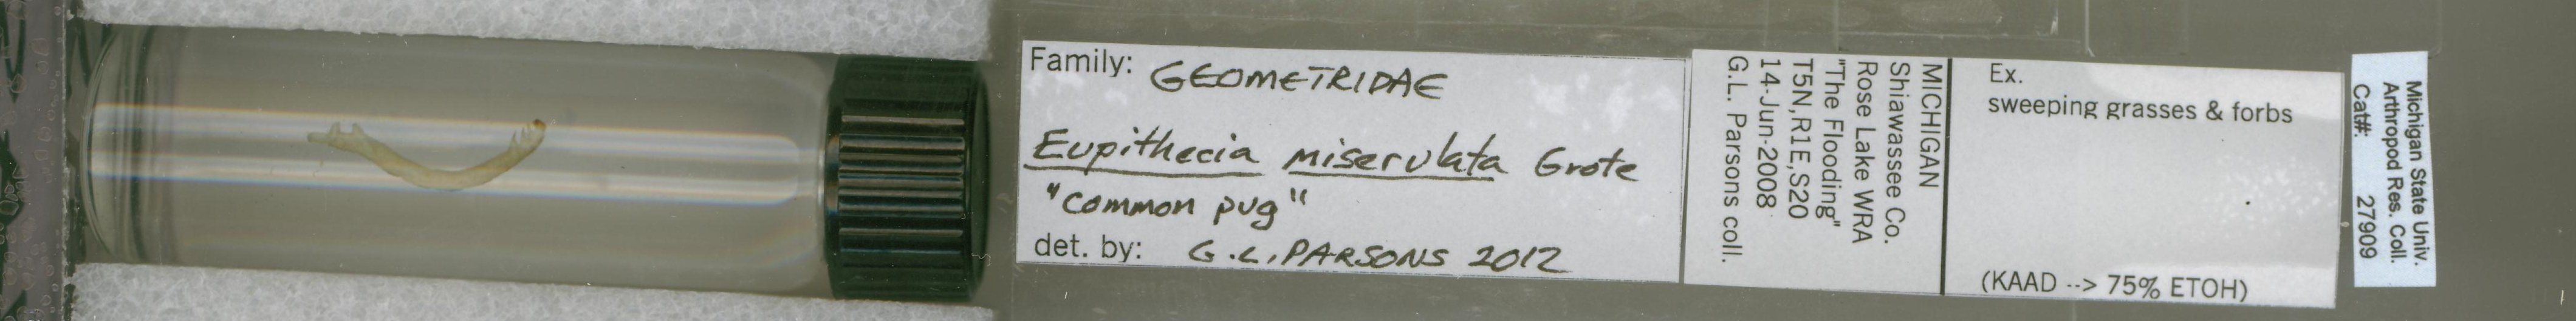 Family: GEOMETRIDAE
Eupithecia miserulata Grote
"Common pug"
det. by: G.L. PARSONS 2012
MICHIGAN
Shiawassee Co.
Rose Lake WRA
"The Flooding"
T5N,R1E,S20
14-Jun-2008
G.L. Parsons coll.
Ex.
sweeping grasses & forbs
(KAAD --> 75% ETOH)
Michigan State Univ.
Arthropod Res. Coll.
Cat#: 279909